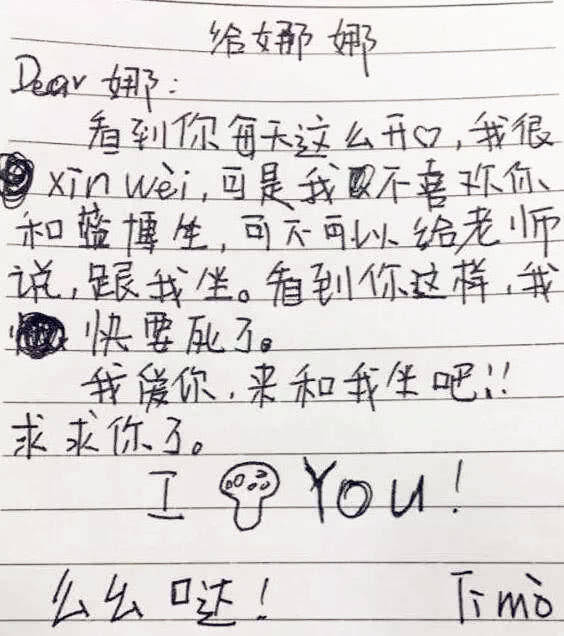 给娜娜
Dear 娜：
看到你每天这么开♡，我很
xīn wèi，可是我不喜欢你
和蓝博生，可不可以给老师
说，跟我坐。看到你这样，我
快要死了。
我爱你，来和我坐吧!!
求求你了。
I You!
么么哒！ Timò